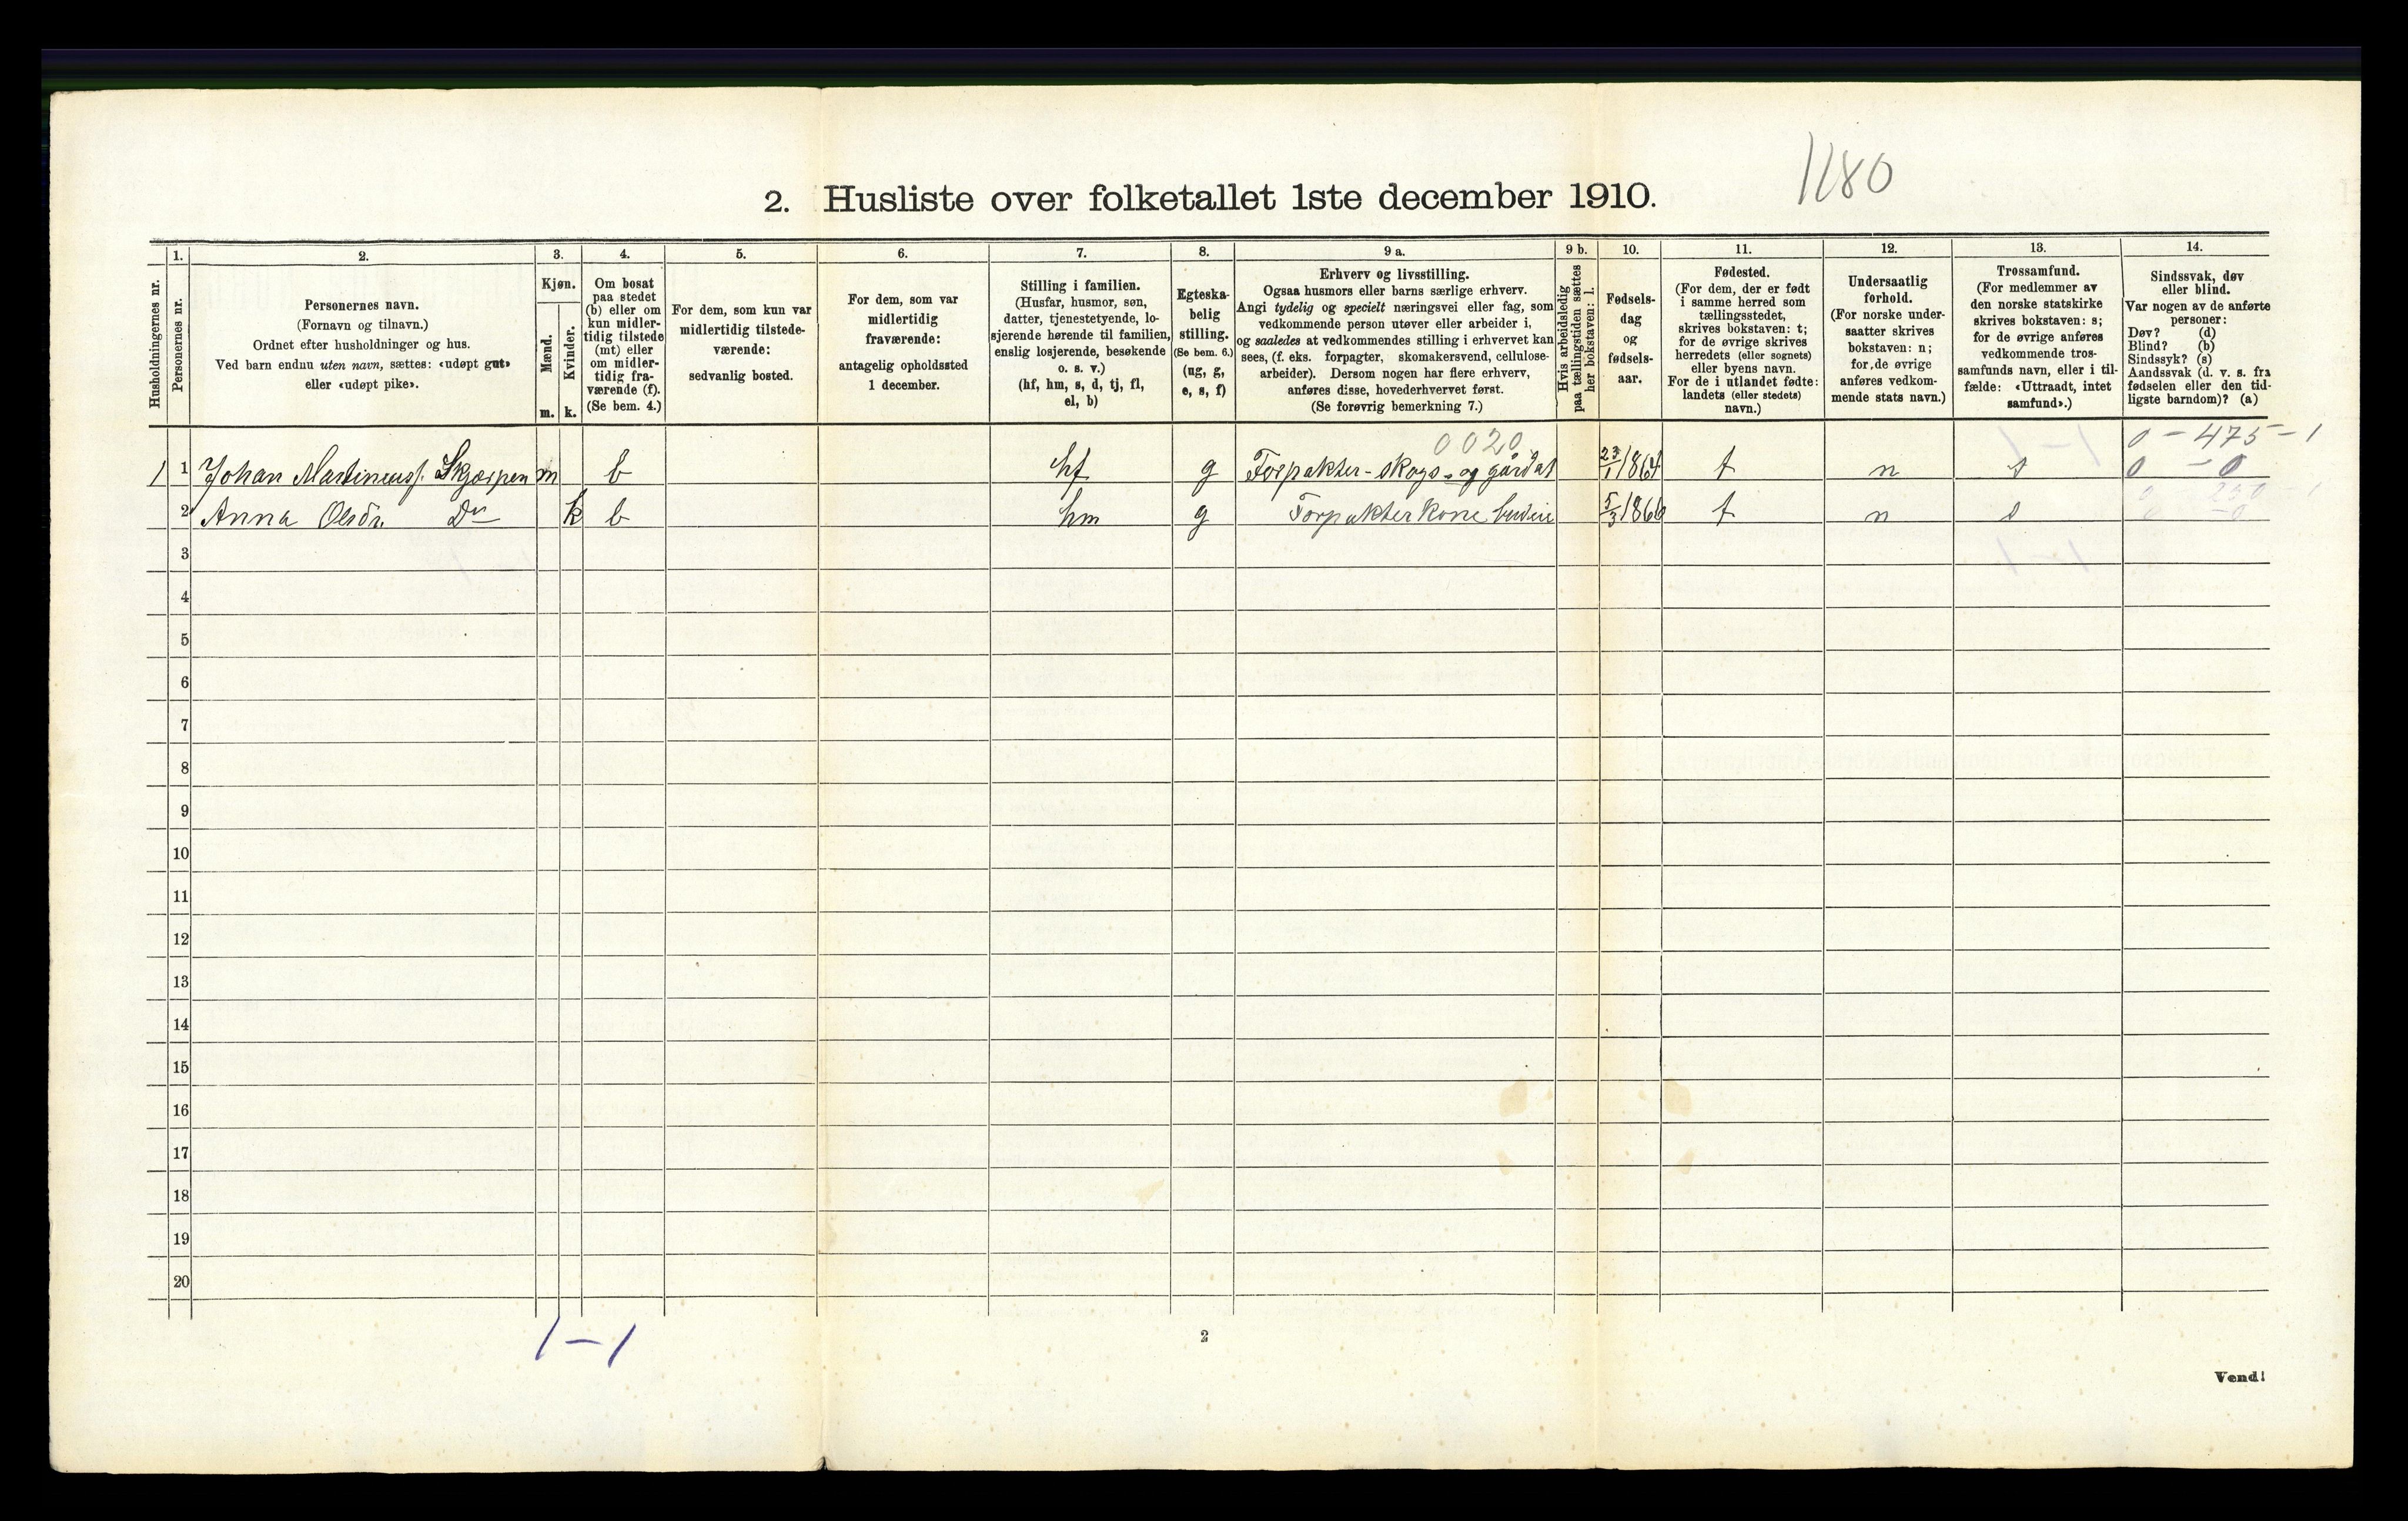 1180
2. Husliste over folketallet 1ste december 1910.
1. 2. 3. 4. 5. 6. 7. 8. 9 a. 9 b. 10. 11. 12. 13. 14.
Husholdningernes nr.
Personernes nr.
Personernes navn.
(Fornavn og tilnavn.)
Ordnet efter husholdninger og hus.
Ved barn endnu uten navn, sættes: «udøpt gut»
eller «udøpt pike».
Kjøn.
Mænd.
m.
Kvinder.
k.
Om bosat
paa stedet
(b) eller om
kun midler-
tidig tilstede
(mt) eller
om midler-
tidig fra-
værende (f).
(Se bem. 4.)
For dem, som kun var
midlertidig tilstede-
værende:
sedvanlig bosted.
For dem, som var
midlertidig
fraværende:
antagelig opholdssted
1 december.
Stilling i familien.
(Husfar, husmor, søn,
datter, tjenestetyende, lo-
sjerende hørende til familien,
enslig losjerende, besøkende
o. s. v.)
(hf, hm, s, d, tj, fl,
el, b)
Egteska-
belig
stilling.
(Se bem. 6.)
(ug, g,
e, s, f)
Erhverv og livsstilling.
Ogsaa husmors eller barns særlige erhverv.
Angi tydelig og specielt næringsvei eller fag, som
vedkommende person utøver eller arbeider i,
og saaledes at vedkommendes stilling i erhvervet kan
sees, (f. eks. forpagter, skomakersvend, cellulose-
arbeider). Dersom nogen har flere erhverv,
anføres disse, hovederhvervet først.
(Se forøvrig bemerkning 7.)
Hvis arbeidsledig
paa tællingstiden sættes
her bokstaven: l.
Fødsels-
dag
og
fødsels-
aar.
Fødested.
(For dem, der er født
i samme herred som
tællingsstedet,
skrives bokstaven: t;
for de øvrige skrives
herredets (eller sognets)
eller byens navn.
For de i utlandet fødte:
landets (eller stedets)
navn.)
Undersaatlig
forhold.
(For norske under-
saatter skrives
bokstaven: n;
for de øvrige
anføres vedkom-
mende stats navn.)
Trossamfund.
(For medlemmer av
den norske statskirke
skrives bokstaven: s;
for de øvrige anføres
vedkommende tros-
samfunds navn, eller i til-
fælde: «Uttraadt, intet
samfund».)
Sindssvak, døv
eller blind.
Var nogen av de anførte
personer:
Døv? (d)
Blind? (b)
Sindssyk? (s)
Aandssvak (d. v. s. fra
fødselen eller den tid-
ligste barndom)? (a)
0020 0 - 475 - 1
1 1 Johan Martinuss. Skjærpen m b hf g Forpakter - skogs- og 23/1 1864 t n s 0 - 0
2 Anna Olsdr. Do k b hm g Forpakter kone 5/3 1866 t n s
3
4
5
6
7
8
9
10
11
12
13
14
15
16
17
18
19
20
1 - 1
2
Vend!